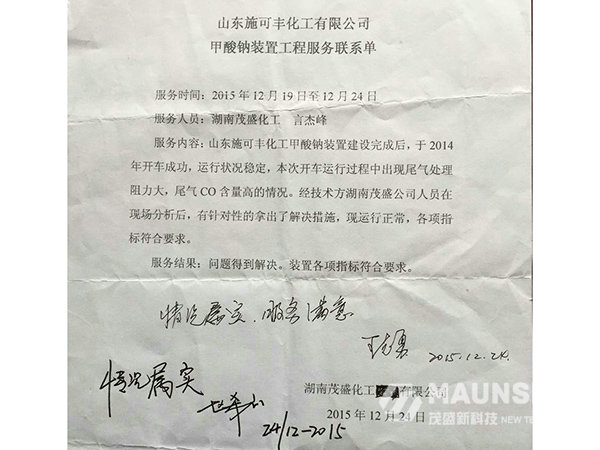 山东施可丰化工有限公司
甲酸钠装置工程服务联系单
服务时间：2015 年 12 月 19 日至 12 月 24 日
服务人员：湖南茂盛化工 言杰峰
服务内容：山东施可丰化工甲酸钠装置建设完成后，于 2014
年开车成功，运行状况稳定，本次开车运行过程中出现尾气处理
阻力大，尾气 CO 含量高的情况。经技术方湖南茂盛公司人员在
现场分析后，有针对性的拿出了解决措施，现运行正常，各项指
标符合要求。
服务结果：问题得到解决。装置各项指标符合要求。
情况属实、服务满意
2015.12.24.
情况属实
24/12-2015
湖南茂盛化工 有限公司
2015 年 12 月 24 日
MAUNS
茂盛新科技 NEW TE